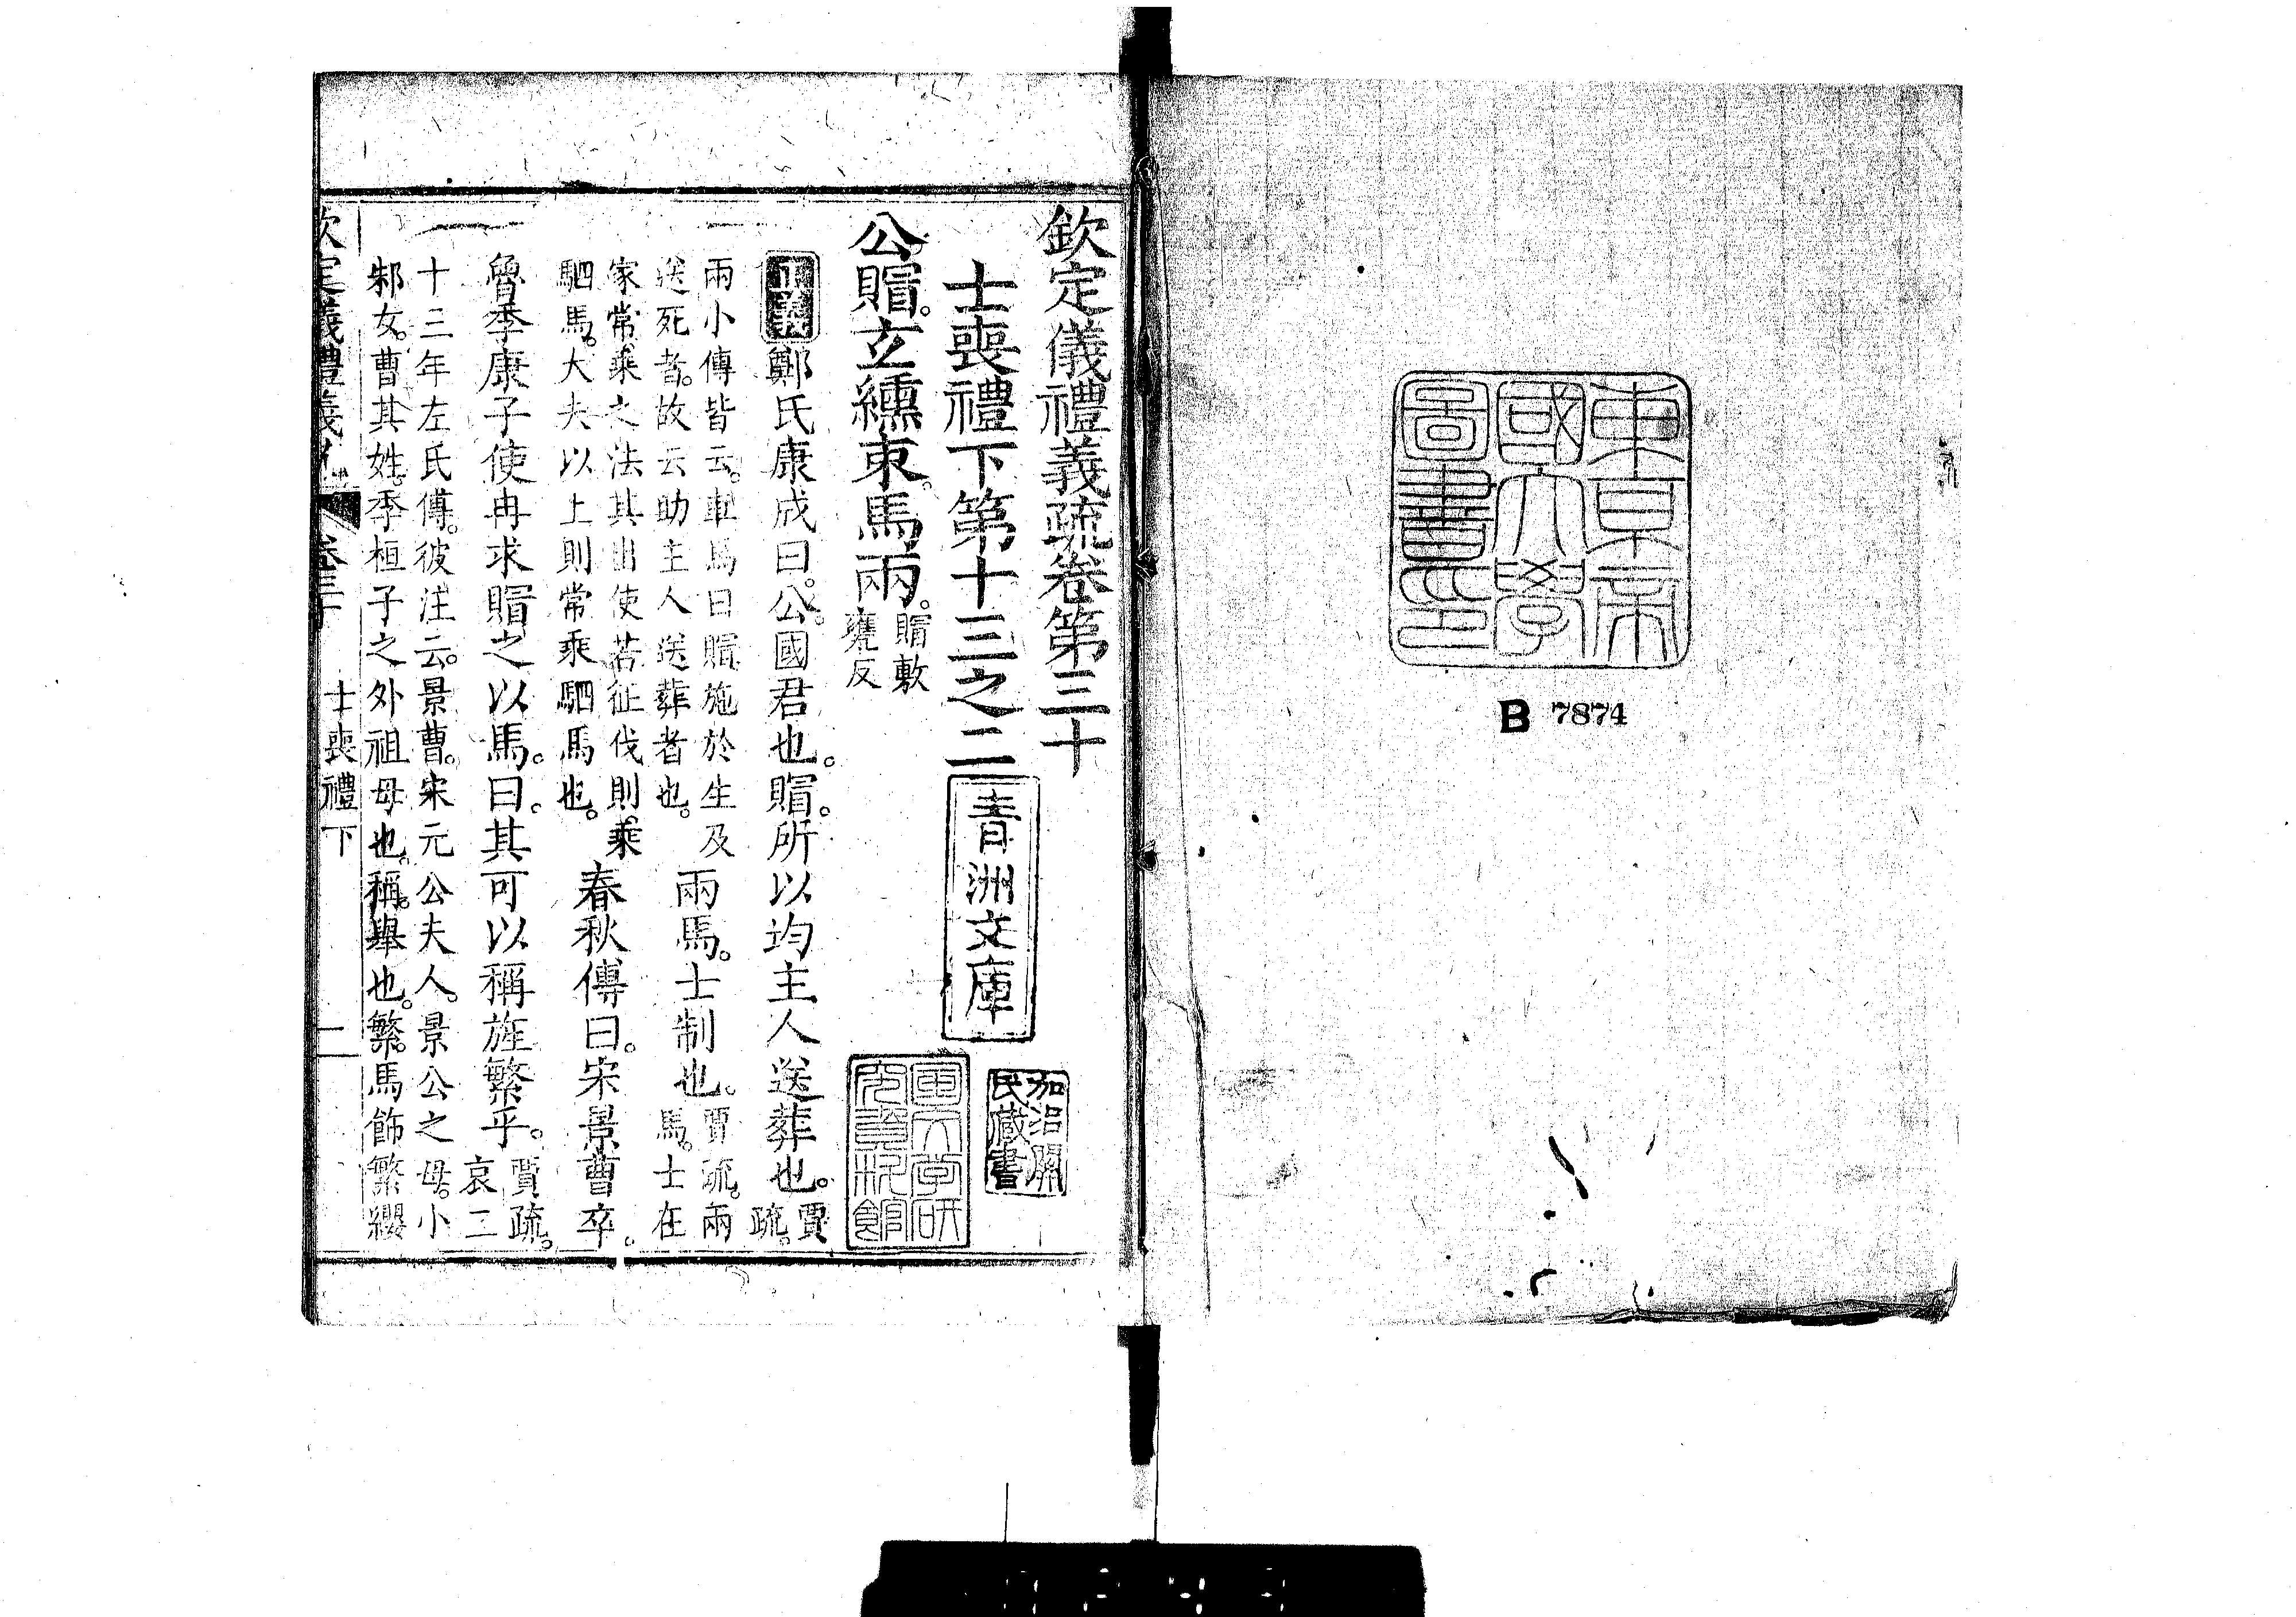 東京帝
國大學
圖書印
B 7874
欽定儀禮義疏卷第三十
士喪禮下第十三之二
青洲文庫
加沿關
民藏書
公賵。玄纁束。馬兩。賵敷
甕反
正義鄭氏康成曰。公。國君也。賵。所以均主人送葬也。賈
疏。
兩小傳皆云。車馬曰賵。施於生及
送死者。故云助主人送葬者也。
兩馬。士制也。
賈疏。兩
馬。士在
家常乘之法。其出使若征伐則乘
駟馬。大夫以上則常乘駟馬也。
春秋傳曰。宋景曹卒。
魯季康子使冉求賵之以馬。曰。其可以稱旌繁乎。
賈疏。
哀二
十三年左氏傳。彼注云。景曹。宋元公夫人。景公之母。小
邾女。曹其姓。季桓子之外祖母也。稱。舉也。繁。馬飾繁纓
欽定儀禮義疏 卷三十 士喪禮下 一